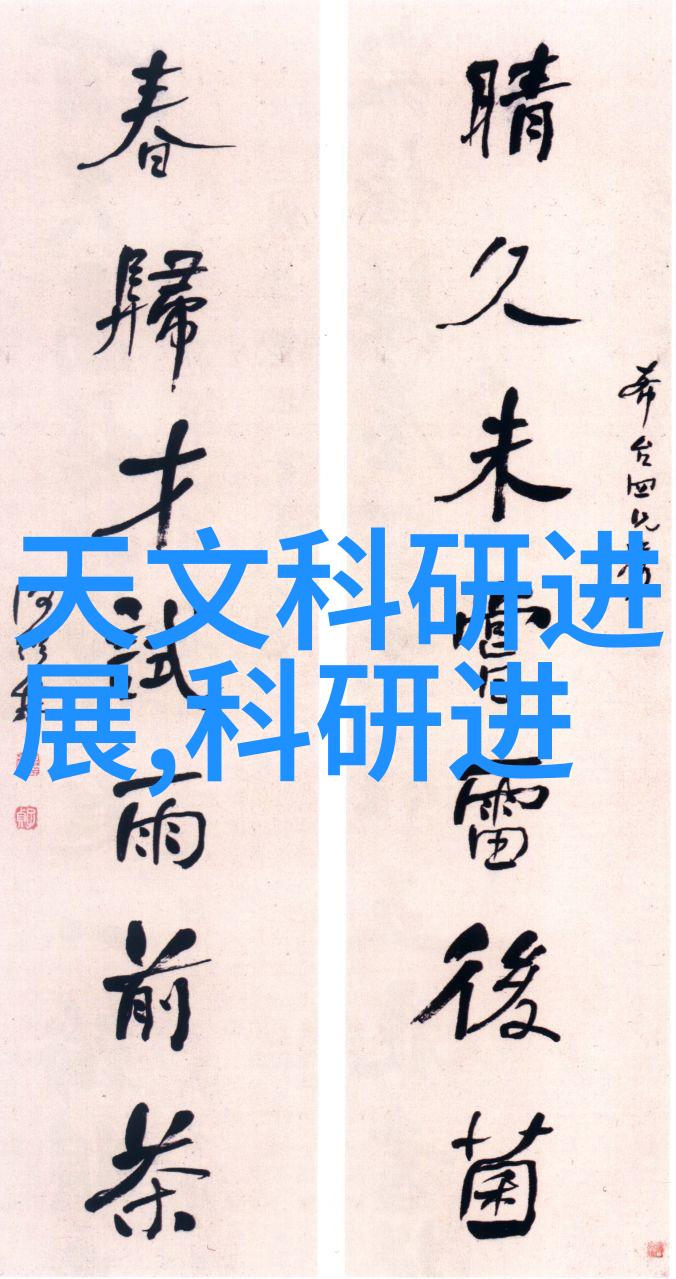 晴久未嘗雷後菌
春歸才試雨前茶
天文科研进
展,科研进